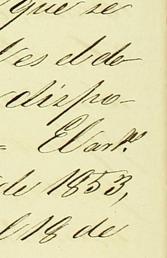 que se
es el de-
dispo-
El art.º
de 1853,
l 18 de